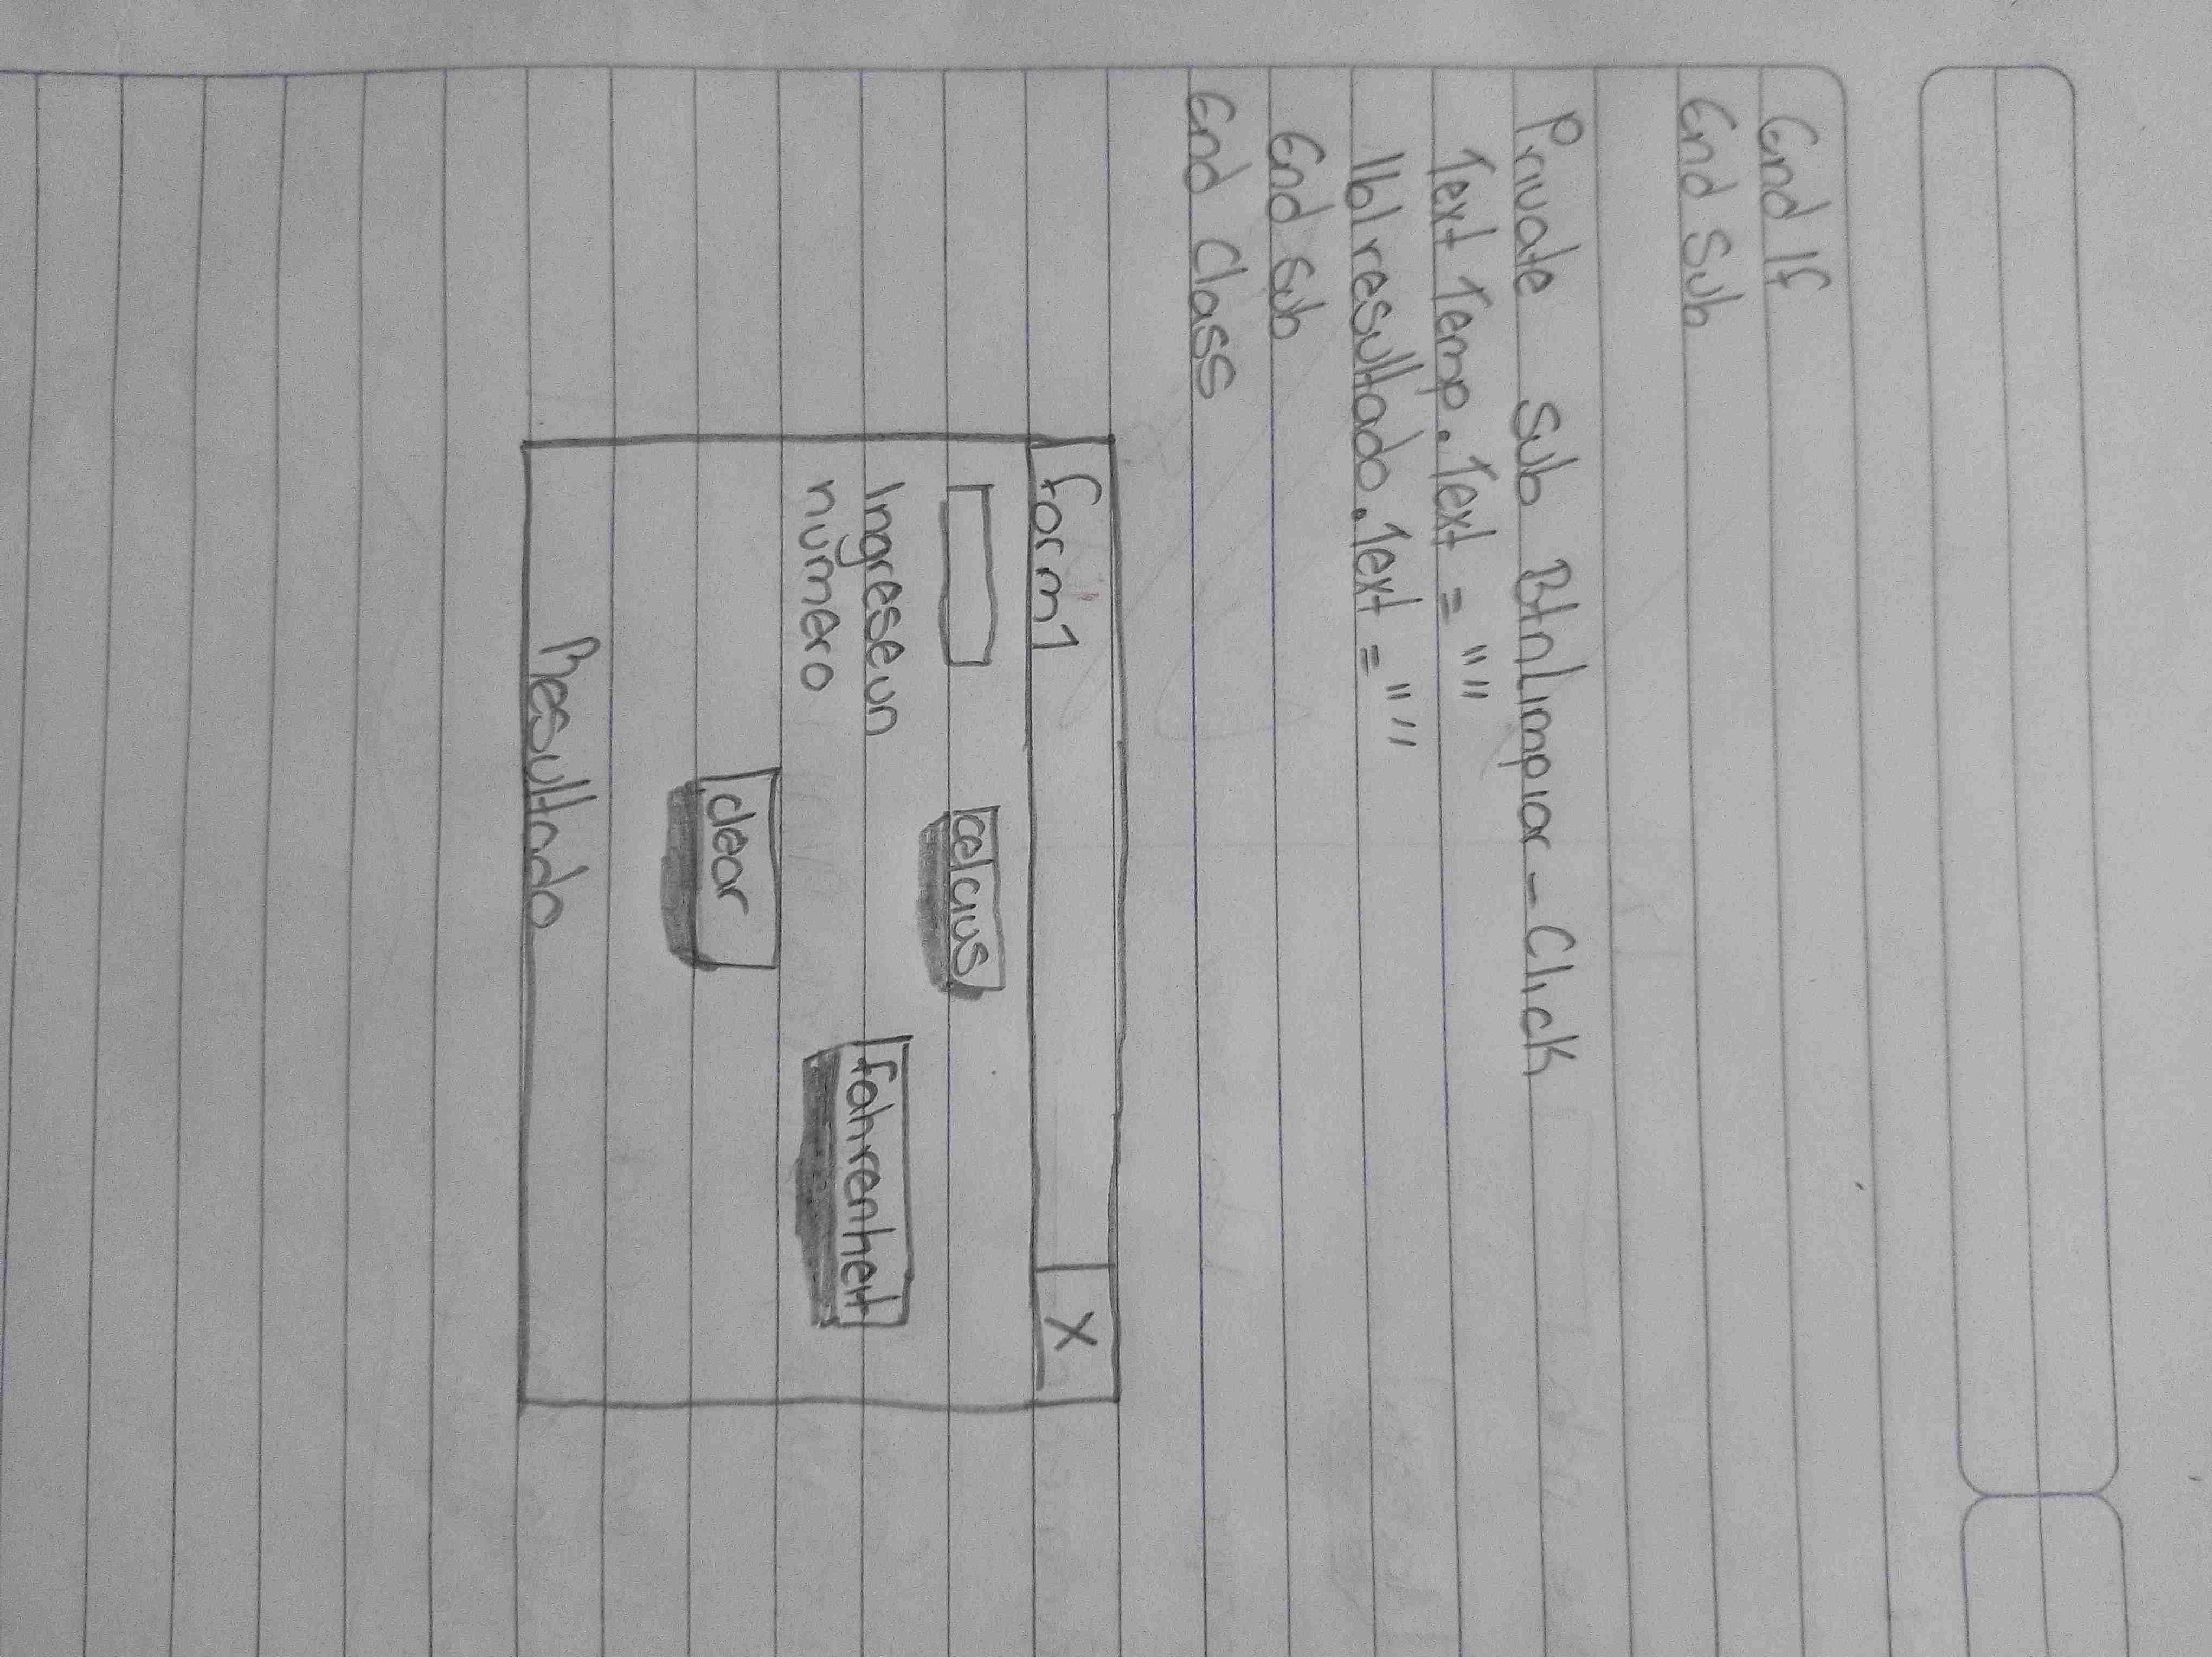 End If
End Sub
Private Sub BtnLimpiar-Click
Text Temp.Text = ""
lblresultado.Text = ""
End Sub
End Class
form1 X
celcius
Ingrese un
número
fahrenheit
clear
Resultado